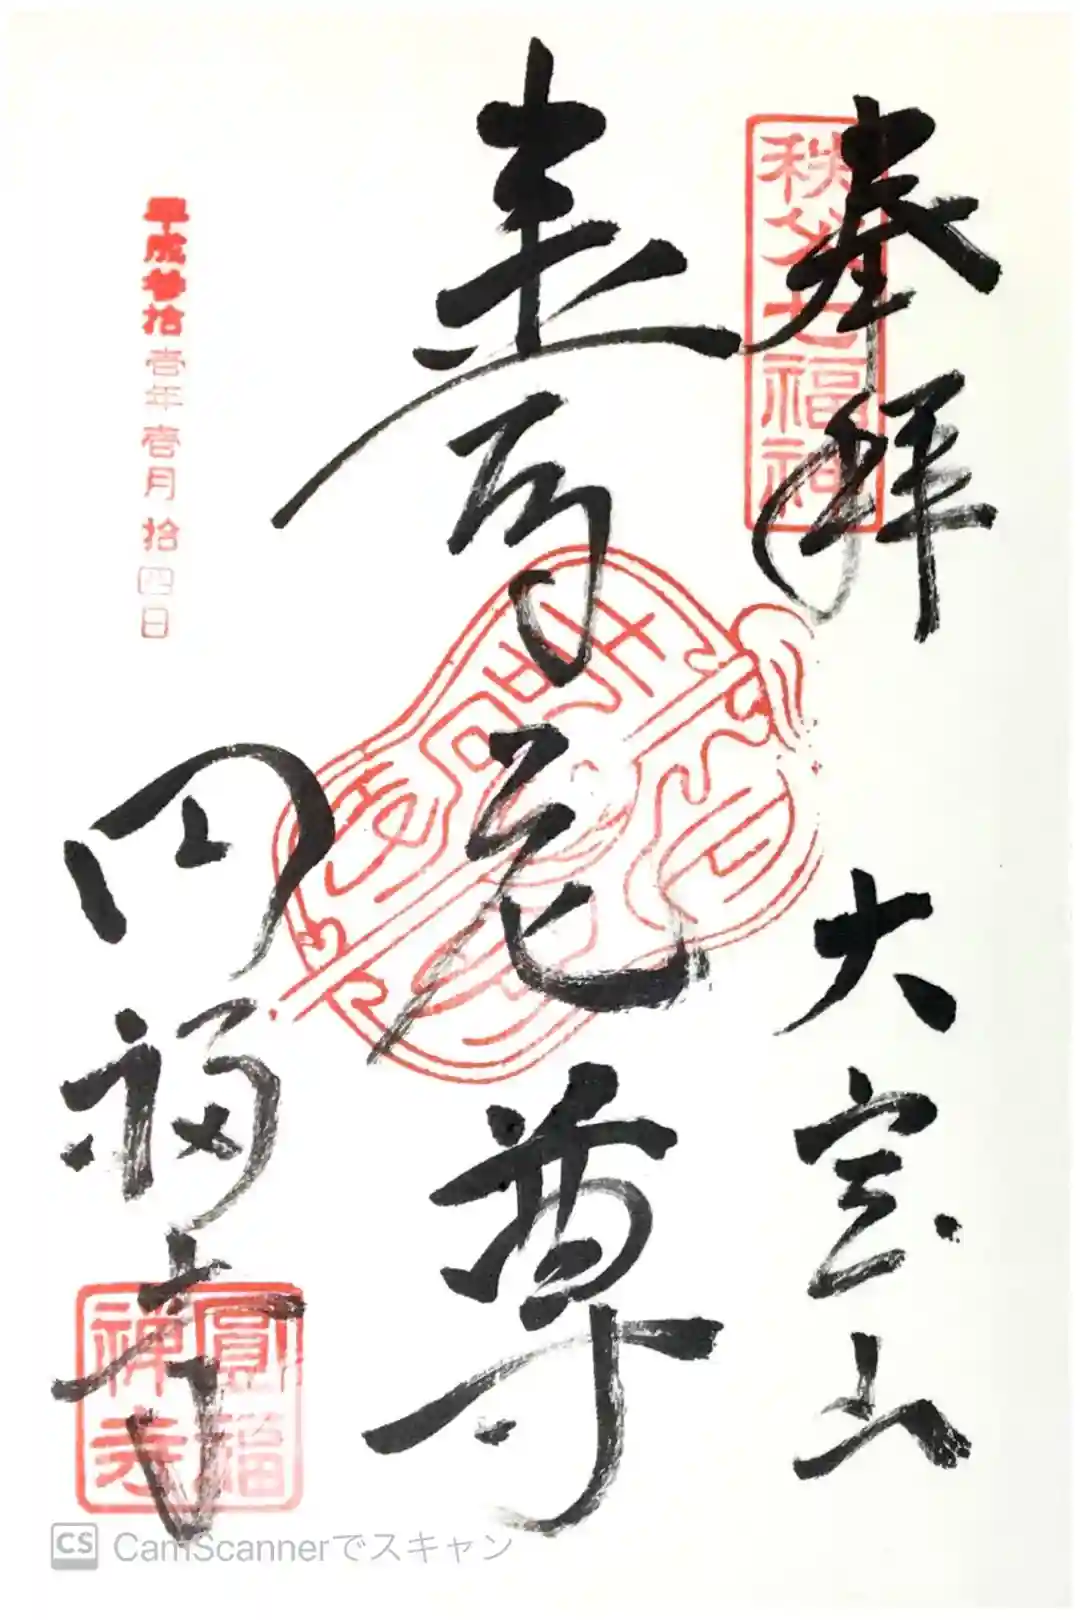 奉拝 大宝山
秩父七福神
壽老尊
平成参拾壹年壹月拾四日
円福寺
圓福
禅寺
CS CamScannerでスキャン